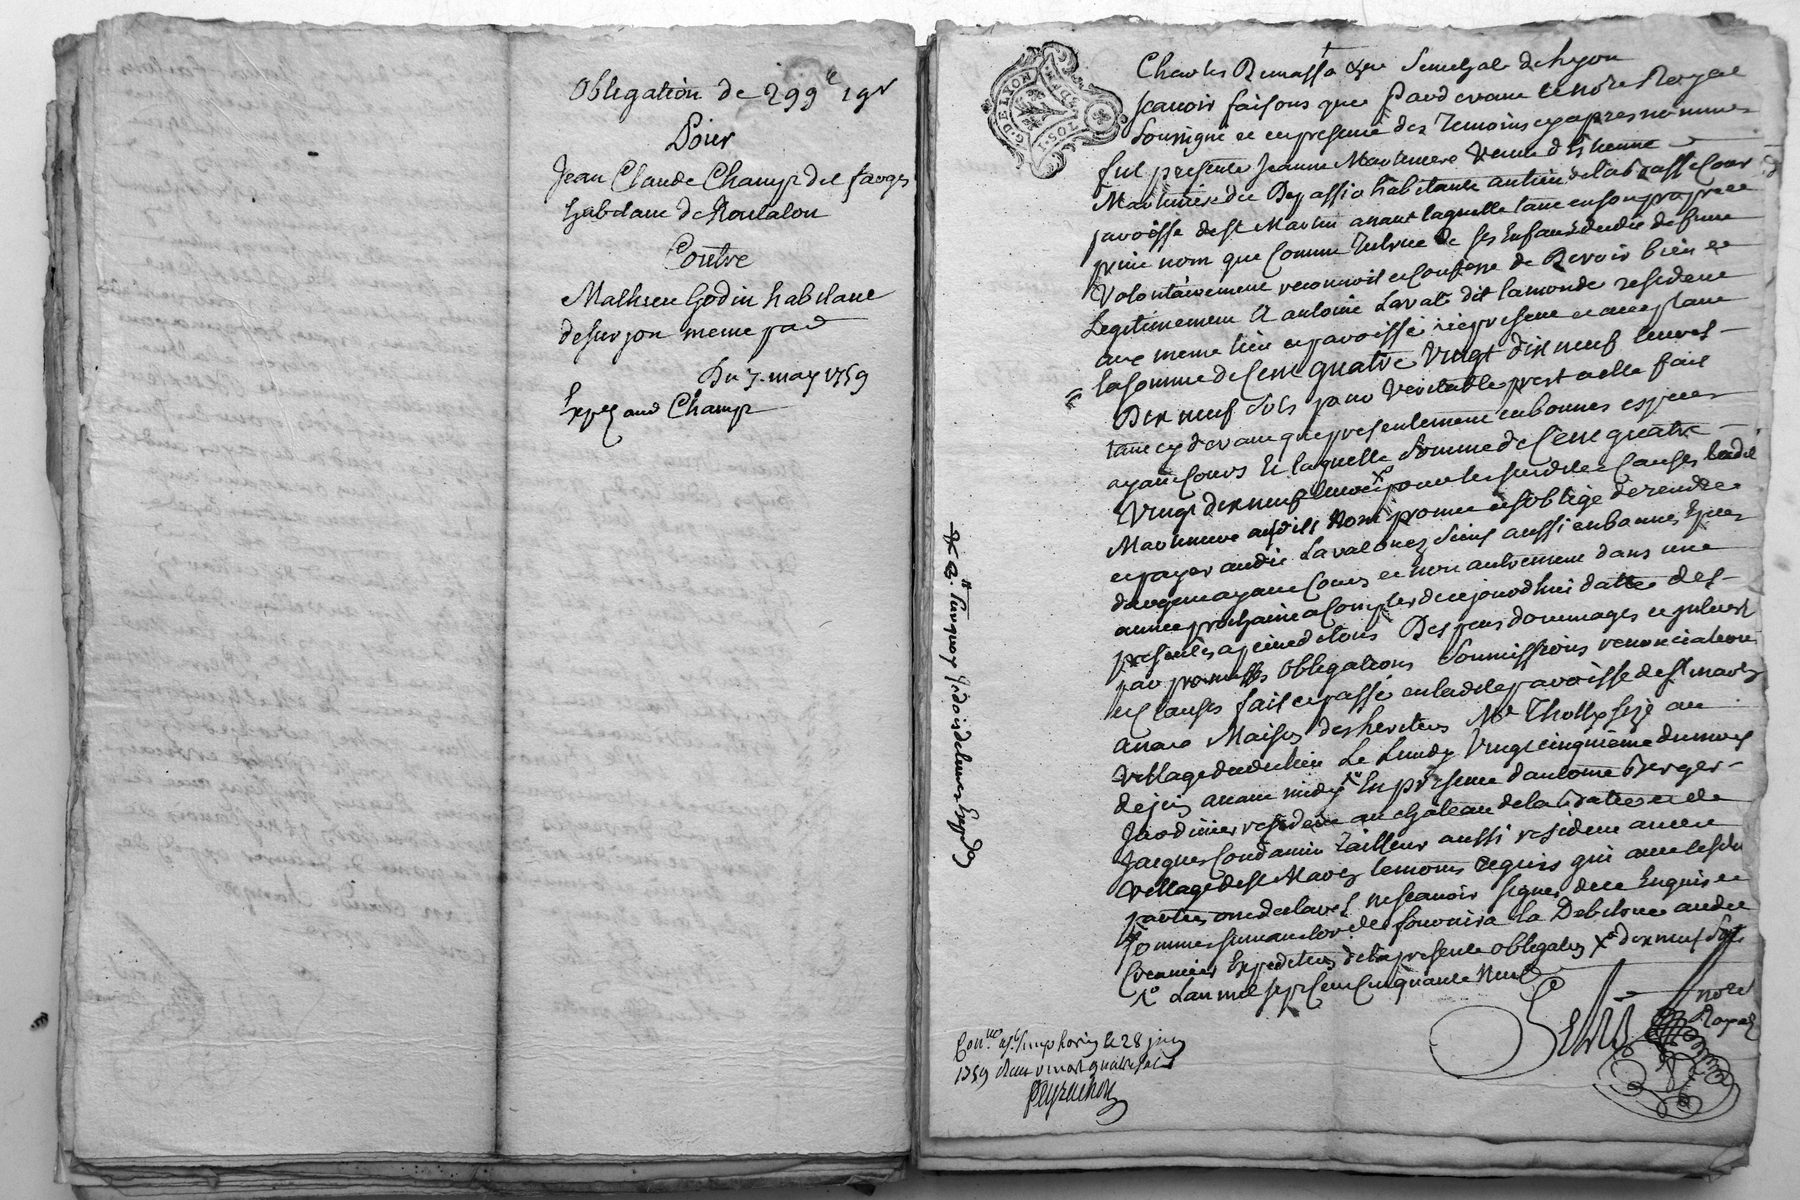 Obligation de 299 lt 19 s
Pour
Jean Claude Champ de farges
habitant de Rontalon
Contre
Mathieu Godin habitant
de Surjon meme par
Du 7. may 1759
Exp. aud Champ
G. DE LYON
Charles Senechal de Lyon
scavoir faisons que pardevant le notre Royal
soussigné et en presence des temoins cy apres nommes
fut presente Jeanne Martiniere veuve d'Estienne
Martiniere dit habitante au lieu de la
paroisse de St Martin laquelle tant en son propre
privé nom que comme tutrice de ses Enfants dudit defunt
Volontairement reconnoit et confesse de devoir bien et
Legitimement A antoine Laval dit lamonde resident
aux meme lieu et paroisse icy present et acceptant
la somme de Cent quatre Vingt dix neuf livres
Dix neuf sols pour veritable prest a elle fait
tant cy devant que presentement en bonnes especes
ayant Cours Et laquelle somme de Cent quatre
Vingt dix neuf livres Xo pour les susdites Causes ladite
Martiniere promet et s'oblige de rendre
et payer audit Laval ou es siens aussi en bonnes Especes
ayant Cours et non autrement dans une
année prochaine a Compter de cejourdhui datte des
presentes a peine de tous Despens dommages et interest
par promesses obligations soumissions renonciations
et Clauses fait et passé en ladite paroisse de St martin
Maison des heritiers Mr au
Village dudit lieu Le Lundy Vingt cinquieme du mois
de juin avant midy En presence d'antoine Berger
Jardinier resident au chateau de et de
Jacques Condamin tailleur aussi resident
Village de St temoins requis qui avec lesd
parties ont declaré ne scavoir signer de ce Enquis et
sommes suivant lord. fournira la Debitrice audit
Creancier Expedition de la presente obligation Xo dix neuf sols
lan mil sept Cent Cinquante Neuf
notre
Royal
Con. a St Simphorien le 28 juin
1759 vingt quatre sols
Peyrachon